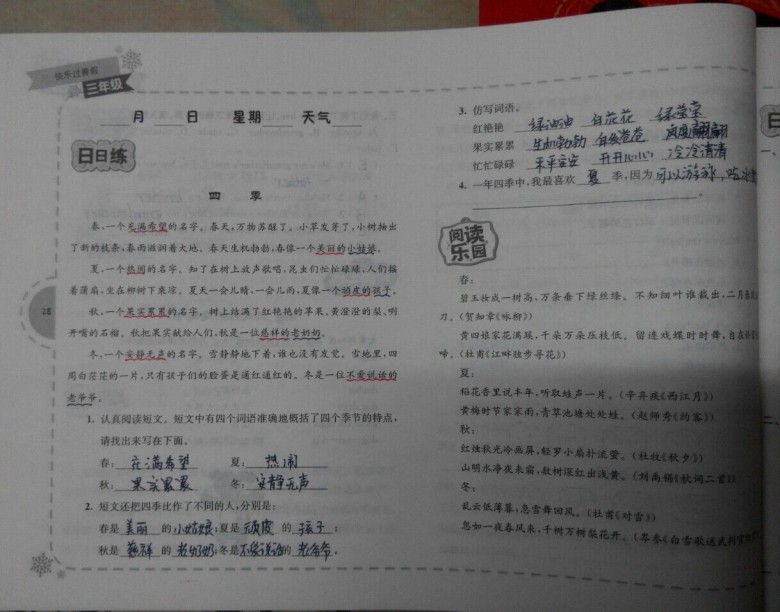 快乐过寒假
三年级
月 日 星期 天气
日日练
四 季
春,一个充满希望的名字。春天,万物苏醒了。小草发芽了,小树抽出
了新的枝条,春雨滋润着大地。春天生机勃勃,春像一个美丽的小姑娘。
夏,一个热闹的名字。知了在树上放声歌唱,昆虫们忙忙碌碌,人们摇
着蒲扇,坐在柳树下乘凉。夏天一会儿晴,一会儿雨,夏像一个顽皮的孩子。
秋,一个果实累累的名字。树上结满了红艳艳的苹果、黄澄澄的梨、咧
开嘴的石榴。秋把果实献给人们,秋是一位慈祥的老奶奶。
冬,一个安静无声的名字。雪静静地下着,谁也没有发觉。雪地里,四
周白茫茫的一片,只有孩子们的脸蛋是通红通红的。冬是一位不爱说话的
老爷爷。
1. 认真阅读短文。短文中有四个词语准确地概括了四个季节的特点,
请找出来写在下面。
春: 充满希望 夏: 热闹
秋: 果实累累 冬: 安静无声
2. 短文还把四季比作了不同的人,分别是:
春是 美丽 的 小姑娘,夏是 顽皮 的 孩子;
秋是 慈祥 的 老奶奶,冬是 不爱说话 的 老爷爷.
28
3. 仿写词语。
红艳艳 绿油油 白花花 绿莹莹
果实累累 生机勃勃 白发苍苍 风度翩翩
忙忙碌碌 平平安安 开开心心 冷冷清清
4. 一年四季中,我最喜欢 夏 季,因为 可以游泳,吃冰
阅读
乐园
春:
碧玉妆成一树高,万条垂下绿丝绦。不知细叶谁裁出,二月春
刀。(贺知章《咏柳》)
黄四娘家花满蹊,千朵万朵压枝低。留连戏蝶时时舞,自在
啼。(杜甫《江畔独步寻花》)
夏:
稻花香里说丰年,听取蛙声一片。(辛弃疾《西江月》)
黄梅时节家家雨,青草池塘处处蛙。(赵师秀《约客》)
秋:
红烛秋光冷画屏,轻罗小扇扑流萤。(杜牧《秋夕》)
山明水净夜来霜,数树深红出浅黄。(刘禹锡《秋词二首》)
冬:
乱云低薄暮,急雪舞回风。(杜甫《对雪》)
忽如一夜春风来,千树万树梨花开。(岑参《白雪歌送武判官